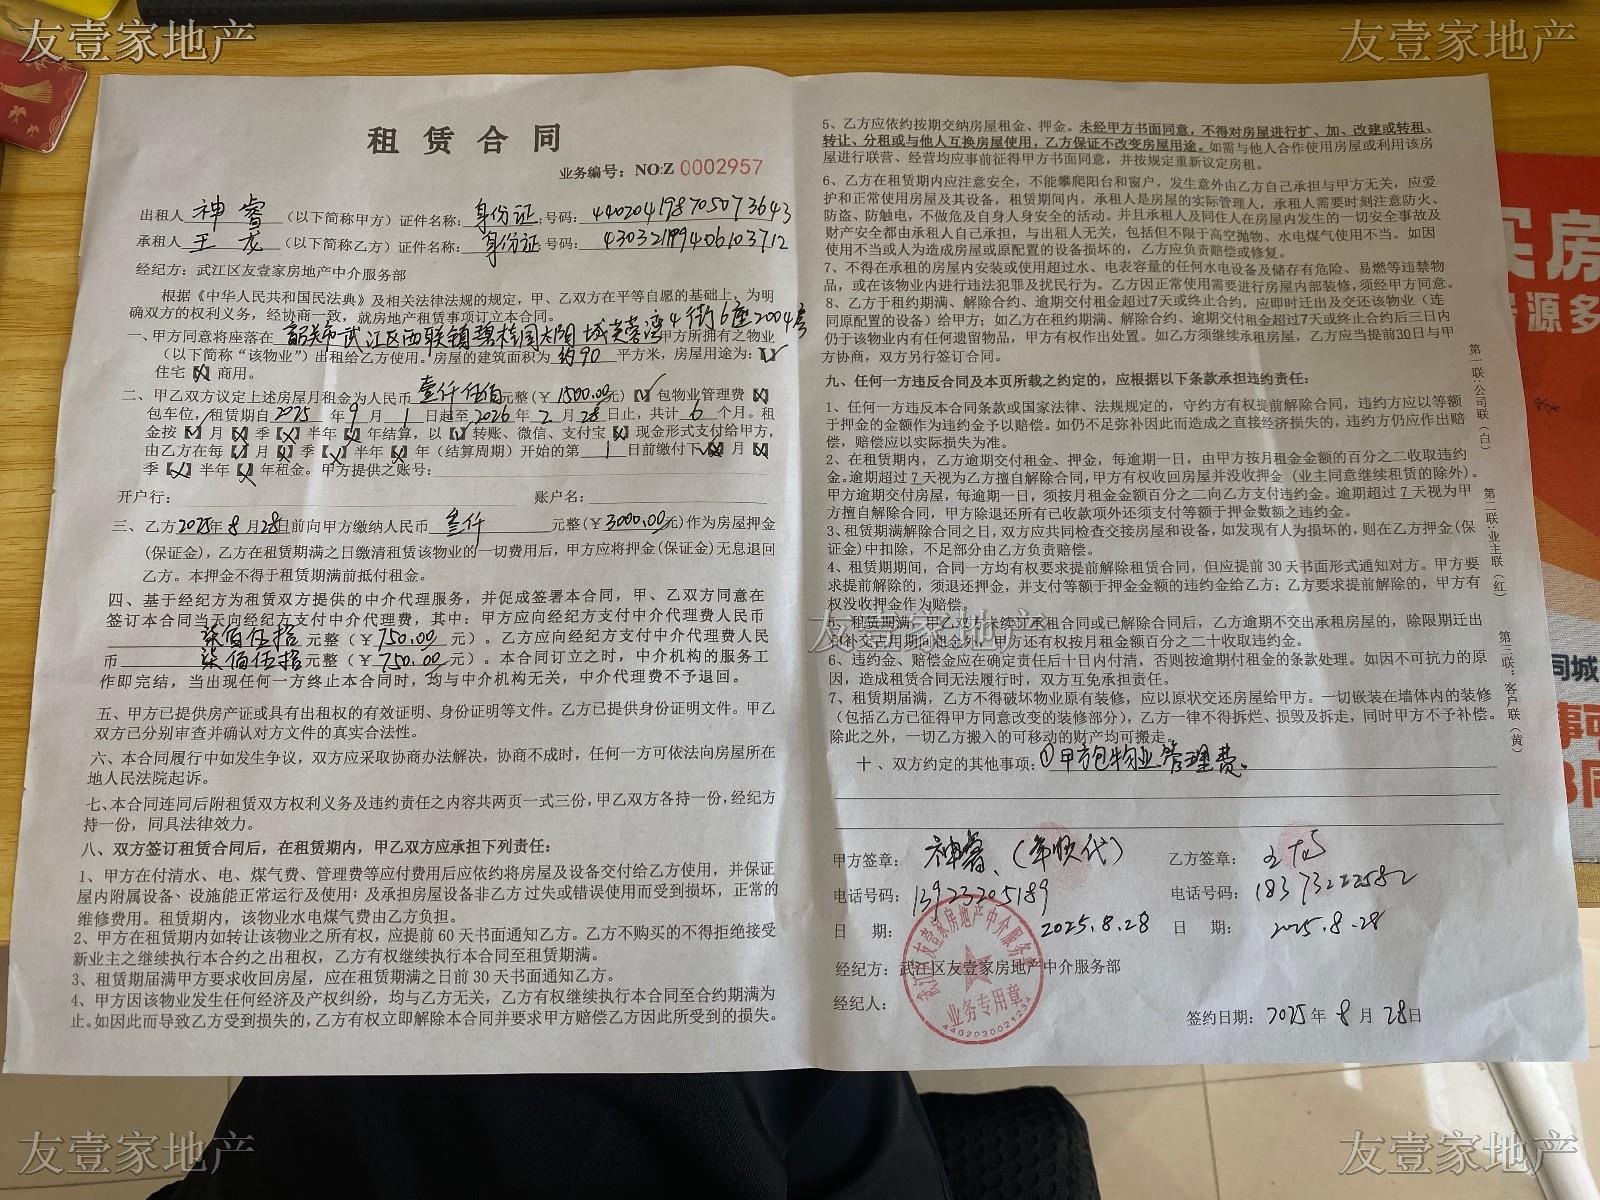 友壹家地产
友壹家地产
租赁合同
业务编号：NO:Z 0002957
出租人 神睿 （以下简称甲方）证件名称：身份证；号码：440204198705073643
承租人 王龙 （以下简称乙方）证件名称：身份证 号码：430321199406103712
经纪方：武江区友壹家房地产中介服务部
根据《中华人民共和国民法典》及相关法律法规的规定，甲、乙双方在平等自愿的基础上，为明
确双方的权利义务，经协商一致，就房地产租赁事项订立本合同。
一、甲方同意将座落在 韶关市武江区西联镇碧桂园太阳城芙蓉湾4街6座2004号 甲方所拥有之物业
（以下简称“该物业”）出租给乙方使用。房屋的建筑面积为 约90 平方米，房屋用途为：【✓】
住宅【✗】商用。
二、甲乙双方议定上述房屋月租金为人民币 壹仟伍佰 元整（¥ 1500.00 元）【✓】包物业管理费【✗】
包车位，租赁期自 2025 年 9 月 1 日起至 2026 年 2 月 28 日止，共计 6 个月。租
金按【✓】月【✗】季【✗】半年【✗】年结算，以【✓】转账、微信、支付宝【✗】现金形式支付给甲方，
由乙方在每【✓】月【✗】季【✗】半年【✗】年（结算周期）开始的第 1 日前缴付下【✓】月【✗】
季【✗】半年【✗】年租金。甲方提供之账号：
开户行： 账户名：
三、乙方 2025年 8 月 28日前向甲方缴纳人民币 叁仟 元整（¥ 3000.00 元）作为房屋押金
(保证金)，乙方在租赁期满之日缴清租赁该物业的一切费用后，甲方应将押金(保证金)无息退回
乙方。本押金不得于租赁期满前抵付租金。
四、基于经纪方为租赁双方提供的中介代理服务，并促成签署本合同，甲、乙双方同意在
签订本合同当天向经纪方支付中介代理费，其中：甲方应向经纪方支付中介代理费人民币
柒佰伍拾 元整（¥ 750.00 元）。乙方应向经纪方支付中介代理费人民
币 柒佰伍拾 元整（¥ 750.00 元）。本合同订立之时，中介机构的服务工
作即完结，当出现任何一方终止本合同时，均与中介机构无关，中介代理费不予退回。
五、甲方已提供房产证或具有出租权的有效证明、身份证明等文件。乙方已提供身份证明文件。甲乙
双方已分别审查并确认对方文件的真实合法性。
六、本合同履行中如发生争议，双方应采取协商办法解决，协商不成时，任何一方可依法向房屋所在
地人民法院起诉。
七、本合同连同后附租赁双方权利义务及违约责任之内容共两页一式三份，甲乙双方各持一份，经纪方
持一份，同具法律效力。
八、双方签订租赁合同后，在租赁期内，甲乙双方应承担下列责任：
1、甲方在付清水、电、煤气费、管理费等应付费用后应依约将房屋及设备交付给乙方使用，并保证
屋内附属设备、设施能正常运行及使用；及承担房屋设备非乙方过失或错误使用而受到损坏，正常的
维修费用。租赁期内，该物业水电煤气费由乙方负担。
2、甲方在租赁期内如转让该物业之所有权，应提前 60 天书面通知乙方。乙方不购买的不得拒绝接受
新业主之继续执行本合约之出租权，乙方有权继续执行本合同至租赁期满。
3、租赁期届满甲方要求收回房屋，应在租赁期满之日前 30 天书面通知乙方。
4、甲方因该物业发生任何经济及产权纠纷，均与乙方无关，乙方有权继续执行本合同至合约期满为
止。如因此而导致乙方受到损失的，乙方有权立即解除本合同并要求甲方赔偿乙方因此所受到的损失。
5、乙方应依约按期交纳房屋租金、押金。未经甲方书面同意，不得对房屋进行扩、加、改建或转租、
转让、分租或与他人互换房屋使用，乙方保证不改变房屋用途。如需与他人合作使用房屋或利用该房
屋进行联营、经营均应事前征得甲方书面同意，并按规定重新议定房租。
6、乙方在租赁期内应注意安全，不能攀爬阳台和窗户，发生意外由乙方自己承担与甲方无关，应爱
护和正常使用房屋及其设备，租赁期间内，承租人是房屋的实际管理人，承租人需要时刻注意防火、
防盗、防触电，不做危及自身人身安全的活动。并且承租人及同住人在房屋内发生的一切安全事故及
财产安全都由承租人自己承担，与出租人无关，包括但不限于高空抛物、水电煤气使用不当。如因
使用不当或人为造成房屋或原配置的设备损坏的，乙方应负责赔偿或修复。
7、不得在承租的房屋内安装或使用超过水、电表容量的任何水电设备及储存有危险、易燃等违禁物
品，或在该物业内进行违法犯罪及扰民行为。乙方因正常使用需要进行房屋内部装修，须经甲方同意。
8、乙方于租约期满、解除合约、逾期交付租金超过7天或终止合约，应即时迁出及交还该物业（连
同原配置的设备）给甲方；如乙方在租约期满、解除合约、逾期交付租金超过7天或终止合约后三日内
仍于该物业内有任何遗留物品，甲方有权作出处置。如乙方须继续承租房屋，乙方应当提前30日与甲
方协商，双方另行签订合同。
九、任何一方违反合同及本页所载之约定的，应根据以下条款承担违约责任：
1、任何一方违反本合同条款或国家法律、法规规定的，守约方有权提前解除合同，违约方应以等额
于押金的金额作为违约金予以赔偿。如仍不足弥补因此而造成之直接经济损失的，违约方仍应作出赔
偿，赔偿应以实际损失为准。
2、在租赁期内，乙方逾期交付租金、押金，每逾期一日，由甲方按月租金金额的百分之二收取违约
金。逾期超过 7 天视为乙方擅自解除合同，甲方有权收回房屋并没收押金（业主同意继续租赁的除外）。
甲方逾期交付房屋，每逾期一日，须按月租金金额百分之二向乙方支付违约金。逾期超过 7 天视为甲
方擅自解除合同，甲方除退还所有已收款项外还须支付等额于押金数额之违约金。
3、租赁期满解除合同之日，双方应共同检查交接房屋和设备，如发现有人为损坏的，则在乙方押金(保
证金)中扣除，不足部分由乙方负责赔偿。
4、租赁期期间，合同一方均有权要求提前解除租赁合同，但应提前 30 天书面形式通知对方。甲方要
求提前解除的，须退还押金，并支付等额于押金金额的违约金给乙方；乙方要求提前解除的，甲方有
权没收押金作为赔偿。
5、租赁期满，甲乙双方未续订承租合同或已解除合同后，乙方逾期不交出承租房屋的，除限期迁出
和补交占用期间租金外，甲方还有权按月租金额百分之二十收取违约金。
友壹家地产
6、违约金、赔偿金应在确定责任后十日内付清，否则按逾期付租金的条款处理。如因不可抗力的原
因，造成租赁合同无法履行时，双方互免承担责任。
7、租赁期届满，乙方不得破坏物业原有装修，应以原状交还房屋给甲方。一切嵌装在墙体内的装修
（包括乙方已征得甲方同意改变的装修部分），乙方一律不得拆烂、损毁及拆走，同时甲方不予补偿。
除此之外，一切乙方搬入的可移动的财产均可搬走。
十、双方约定的其他事项：①甲方包物业管理费。
甲方签章： 神睿 乙方签章： 王龙
电话号码： 13923205189 电话号码： 18373222582
日 期： 2025.8.28 日 期： 2025.8.28
经纪方：武江区友壹家房地产中介服务部
经纪人：
签约日期：2025 年 8 月 28日
武江区友壹家房地产中介服务部
业务专用章
4402030021234
第一联：公司联（白）
第二联：业主联（红）
第三联：客户联（黄）
买房
源多
同城
友壹家地产
友壹家地产